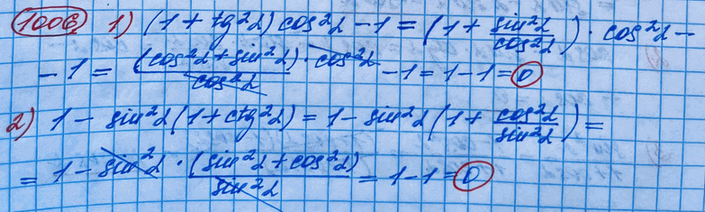 1006 1) (1 + tg²α) cos²α - 1 = (1 + sin²α/cos²α) · cos²α -
- 1 = (cos²α + sin²α) · cos²α/cos²α - 1 = 1 - 1 = 0
2) 1 - sin²α (1 + ctg²α) = 1 - sin²α (1 + cos²α/sin²α) =
= 1 - sin²α · (sin²α + cos²α)/sin²α = 1 - 1 = 0